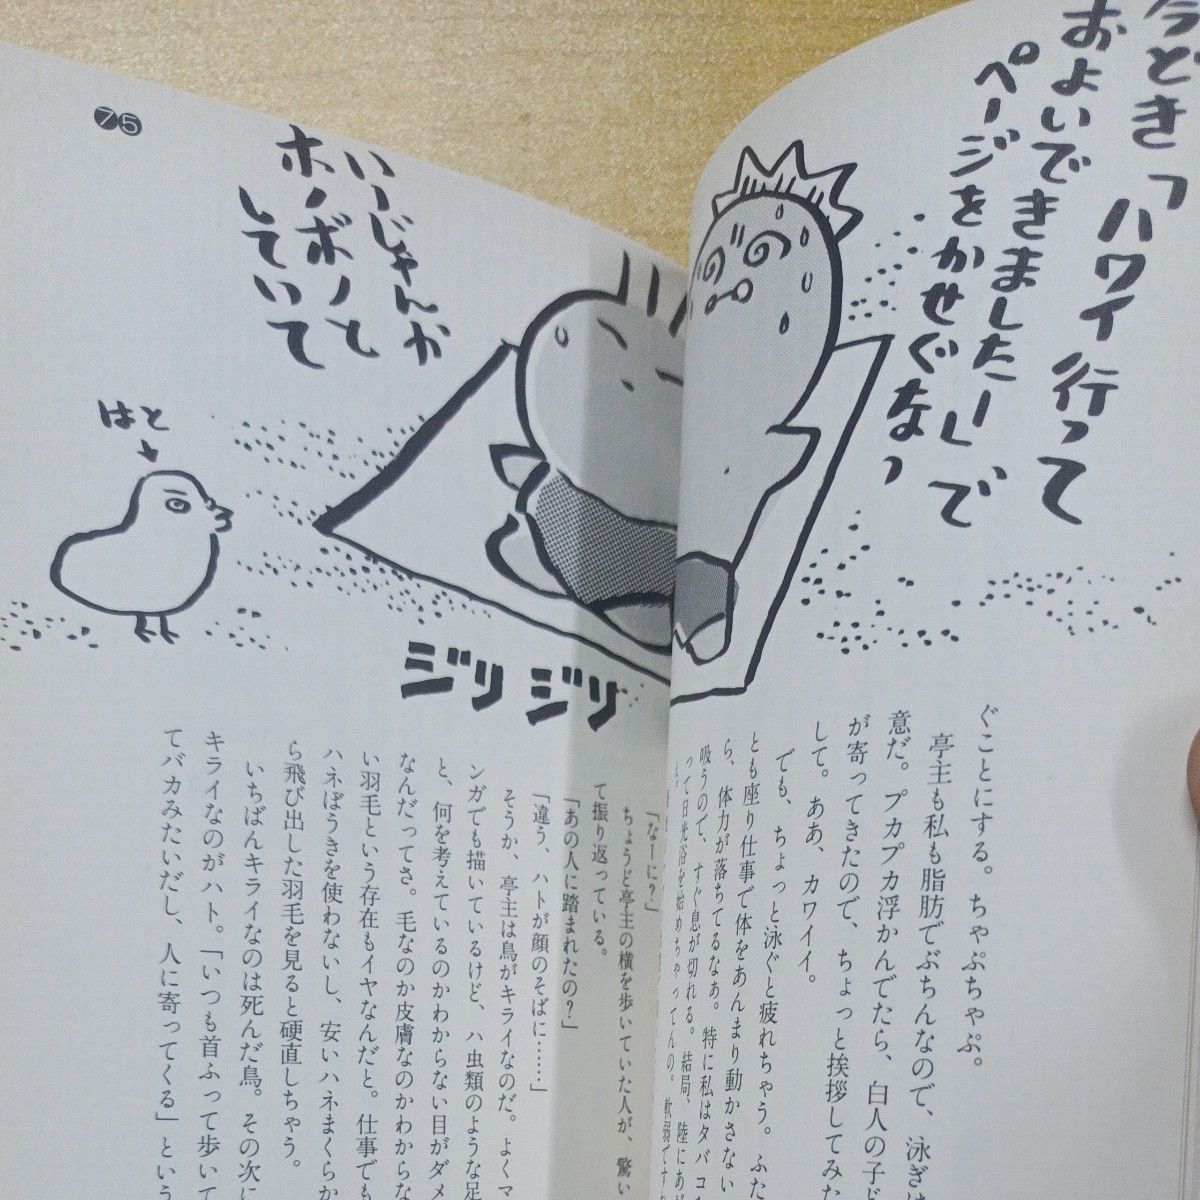 今どき「ハワイ行って
およいできましたー」で
ページをかせぐなっ
ぐことにする。ちゃぷちゃぷ。
亭主も私も脂肪でぶちんなので、泳ぎは
意だ。プカプカ浮かんでたら、白人の子ど
が寄ってきたので、ちょっと挨拶してみた
して。ああ、カワイイ。
でも、ちょっと泳ぐと疲れちゃう。ふた
とも座り仕事で体をあんまり動かさない
ら、体力が落ちてるなぁ。特に私はタバコ
吸うので、すぐ息が切れる。結局、陸にあが
って日光浴を始めちゃってんの。軟弱です
75
いーじゃんか
ホノボノと
していて
はと
ジリジリ
「なーに？」
ちょうど亭主の横を歩いていた人が、驚い
て振り返っている。
「あの人に踏まれたの？」
「違う、ハトが顔のそばに……」
そうか、亭主は鳥がキライなのだ。よくマ
ンガでも描いているけど、ハ虫類のような足
と、何を考えているのかわからない目がダメ
なんだってさ。毛なのか皮膚なのかわからな
い羽毛という存在もイヤなんだと。仕事でも
ハネぼうきを使わないし、安いハネまくらか
ら飛び出した羽毛を見ると硬直しちゃう。
いちばんキライなのは死んだ鳥。その次に
キライなのがハト。「いつも首ふって歩いて
てバカみたいだし、人に寄ってくる」という